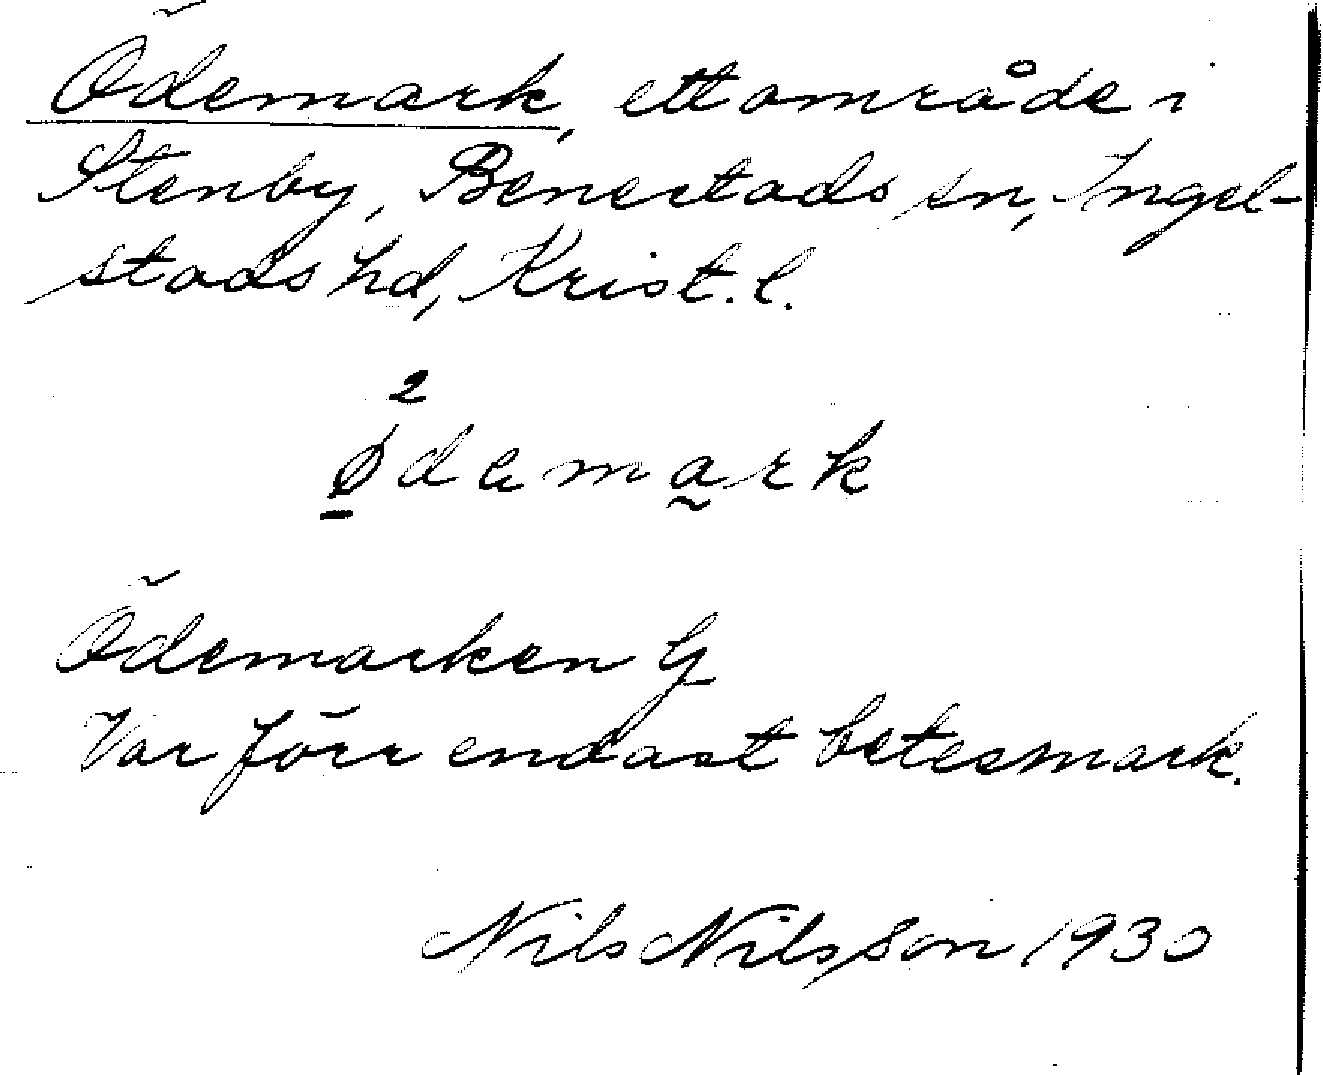 Ödemark, ett område i
Stenby, Benestads sn, Ingel-
stads hd, Krist. l.
2
ødemark
Ödemarken G
Var förr endast betesmark.
Nils Nilsson 1930